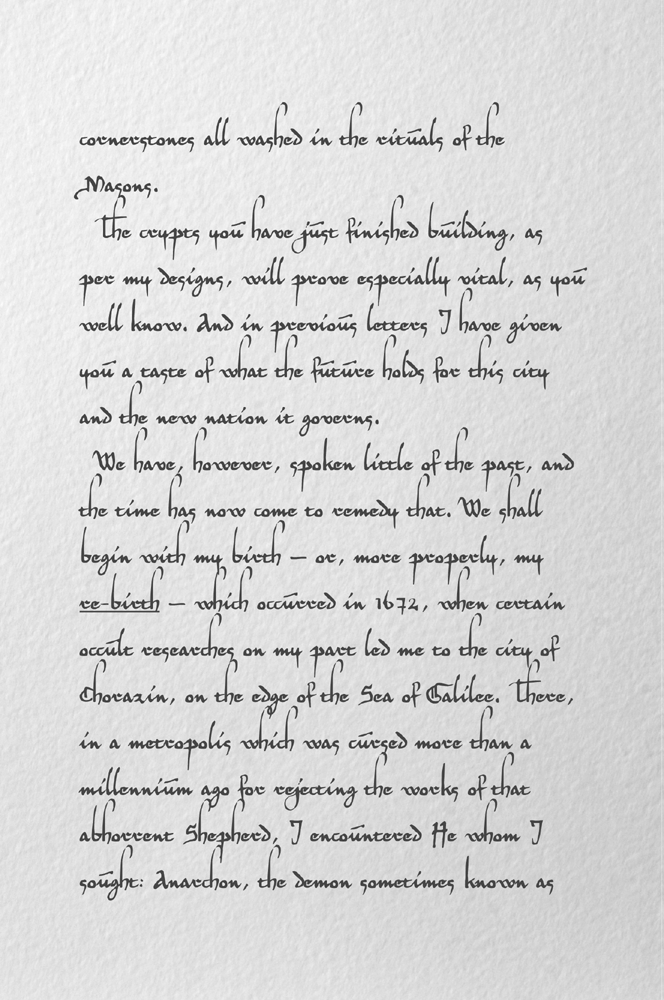 cornerstones all washed in the rituals of the
Masons.
The crypts you have just finished building, as
per my designs, will prove especially vital, as you
well know. And in previous letters I have given
you a taste of what the future holds for this city
and the new nation it governs.
We have, however, spoken little of the past, and
the time has now come to remedy that. We shall
begin with my birth – or, more properly, my
re-birth – which occurred in 1672, when certain
occult researches on my part led me to the city of
Chorazin, on the edge of the Sea of Galilee. There,
in a metropolis which was cursed more than a
millennium ago for rejecting the works of that
abhorrent Shepherd, I encountered He whom I
sought: Anarchon, the demon sometimes known as